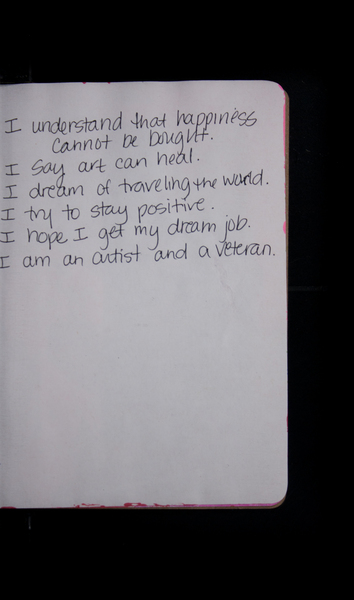 I understand that happiness
cannot be bought.
I say art can heal.
I dream of traveling the world.
I try to stay positive.
I hope I get my dream job.
I am an artist and a veteran.